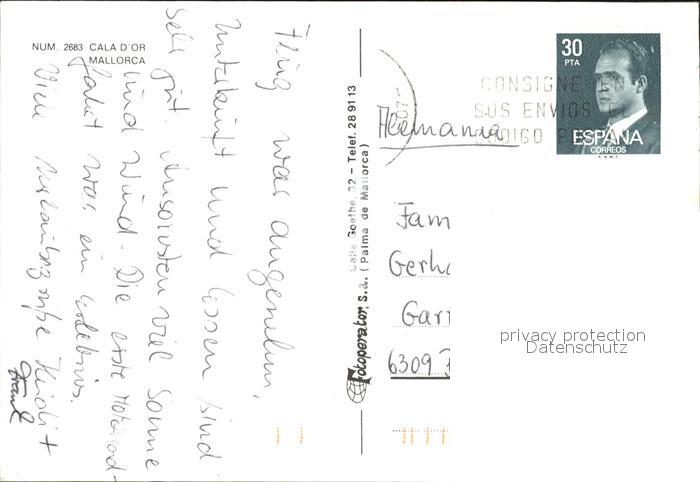 NUM. 2683 CALA D'OR
MALLORCA
Flug war angenehm,
Unterkunft und Essen sind
sehr gut. Ansonsten viel Sonne
und Wind. Die erste Motorrad-
fahrt war ein Erlebnis.
Viele Urlaubsgrüße Heidi +
Frank
Fotoperator, S.a. Calle Goethe, 32 - Telef. 28 91 13
(Palma de Mallorca)
30
PTA
CONSIGNE EN
SUS ENVIOS
ESPAÑA
CORREOS
F.N.M.T.
Alemania
Fam
Gerha
Gar
6309
privacy protection
Datenschutz